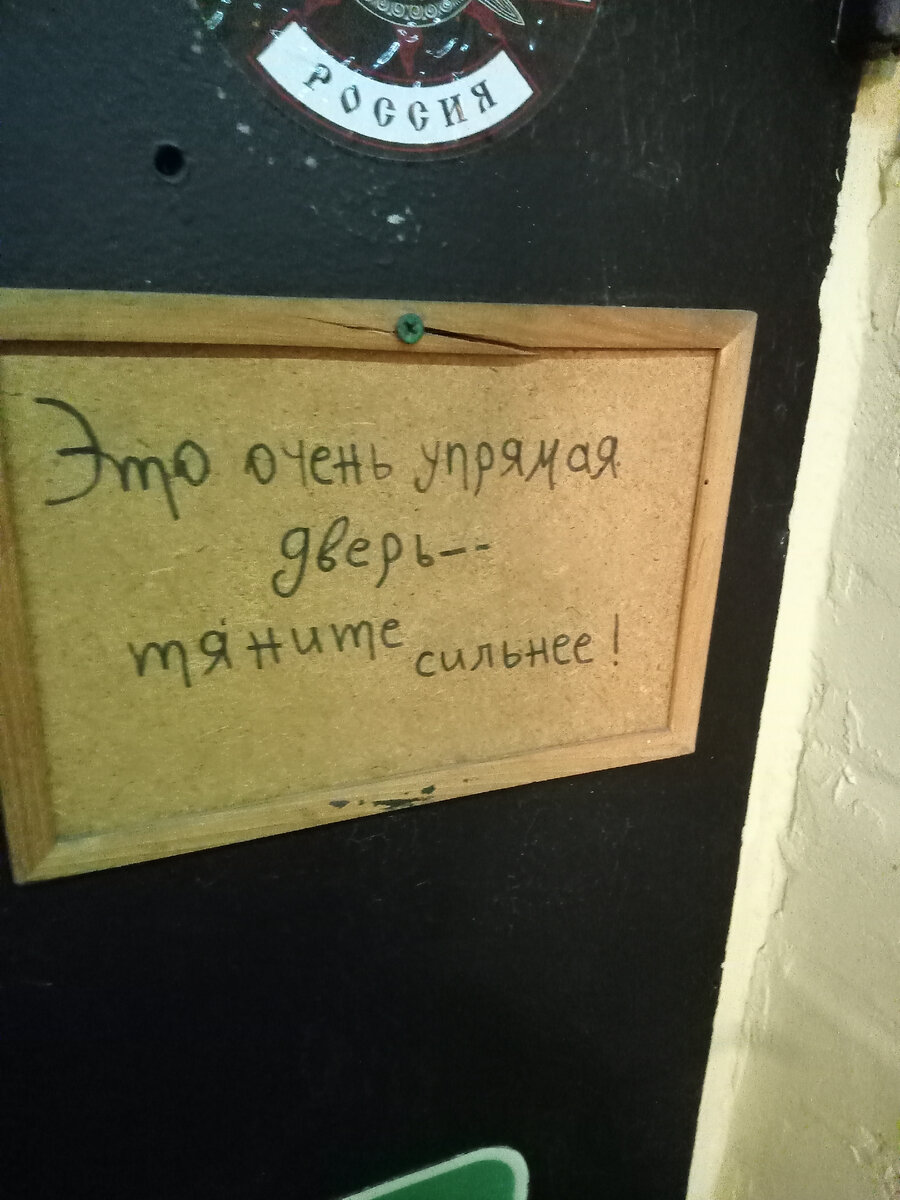 РОССИЯ
Это очень упрямая
дверь--
тяните сильнее!